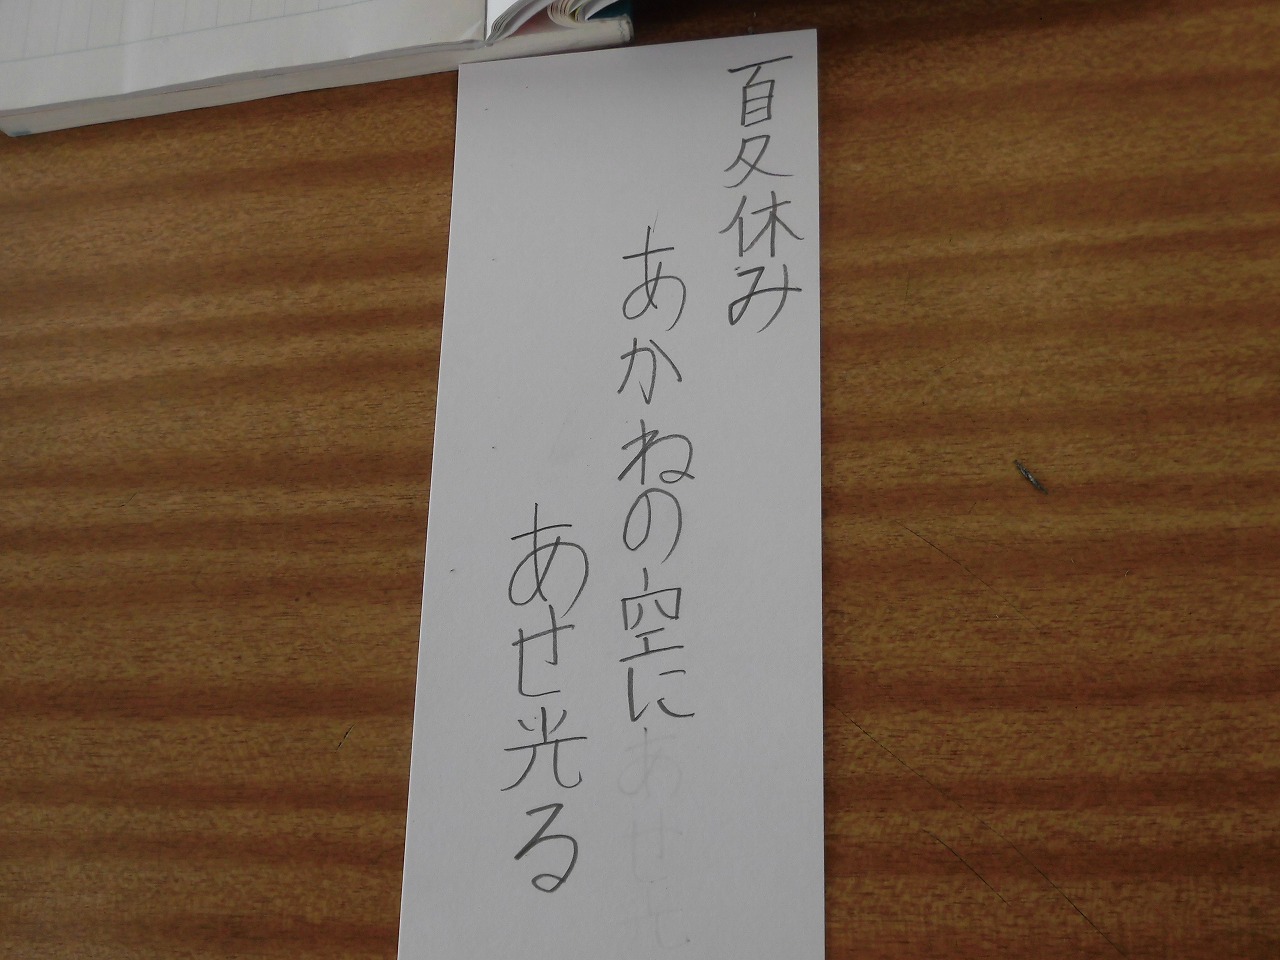 夏休み
あかねの空に
あせ光る